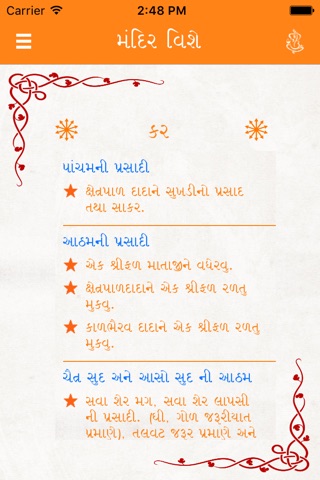 Carrier 2:48 PM
મંદિર વિશે
કર
પાંચમની પ્રસાદી
ક્ષેત્રપાળ દાદાને સુખડીનો પ્રસાદ
તથા સાકર.
આઠમની પ્રસાદી
એક શ્રીફળ માતાજીને વધેરવુ.
ક્ષેત્રપાળદાદાને એક શ્રીફળ રળતુ
મુકવુ.
કાળભૈરવ દાદાને એક શ્રીફળ રળતુ
મુકવુ.
ચૈત્ર સુદ અને આસો સુદ ની આઠમ
સવા શેર મગ, સવા શેર લાપસી
ની પ્રસાદી. (ઘી, ગોળ જરૂરીયાત
પ્રમાણે), તલવટ જરૂર પ્રમાણે અને